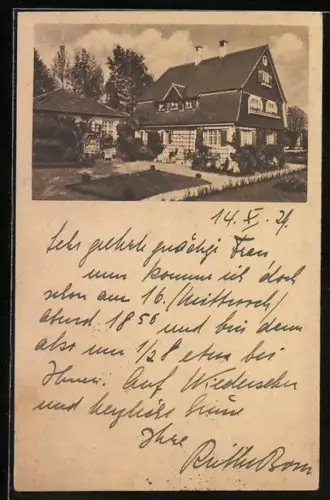 14. X. 29.
Sehr geehrte gnädige Frau,
nun komme ich doch
schon am 16. /Mittwoch/
abend 18⁵⁰ und bin dann
also um 1/2 8 etwa bei
Ihnen. Auf Wiedersehn
und herzliche Grüsse
Ihre
Ruth Born